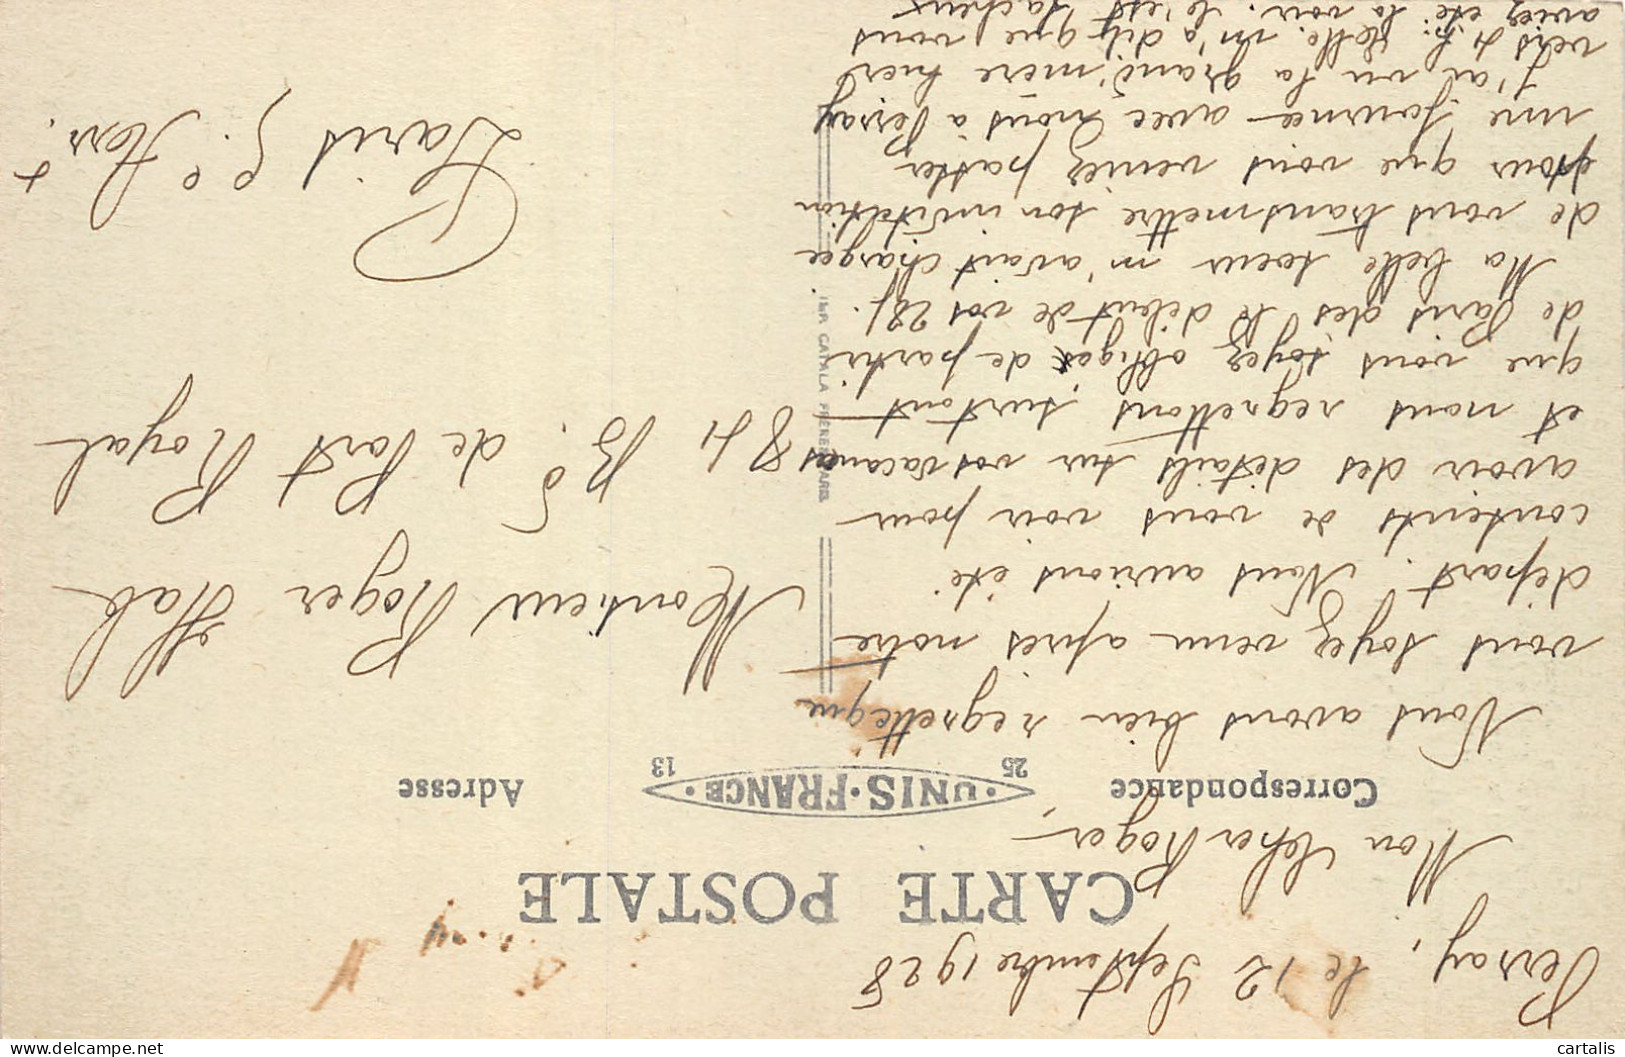 Perray, le 12 Septembre 1928
CARTE POSTALE
Mon cher Roger,
Correspondance
25 UNIS-FRANCE 13
Adresse
Nous avons bien regretté que
vous soyez venu après notre
départ. Nous aurions été
contents de vous voir pour
avoir des détails sur vos vacances
et nous regrettons surtout
que vous soyez obligés de partir
de Paris dès le début de vos
Ma belle soeur m'avait chargée
de vous transmettre son invitation
pour que vous veniez passer
une journée avec nous à Perray
J'ai vu ta grand'mère hier
vers 4 h. Elle m'a dit que vous
aviez été la voir. C'est fâcheux
IMP. CATALA FRÈRES PARIS
Monsieur Roger
84 Bd. de Port Royal
Paris 5e Arr.t
cartalis